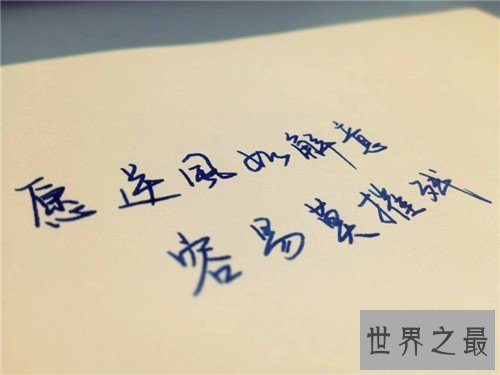 愿逆風如解意
容易莫摧残
世界之最